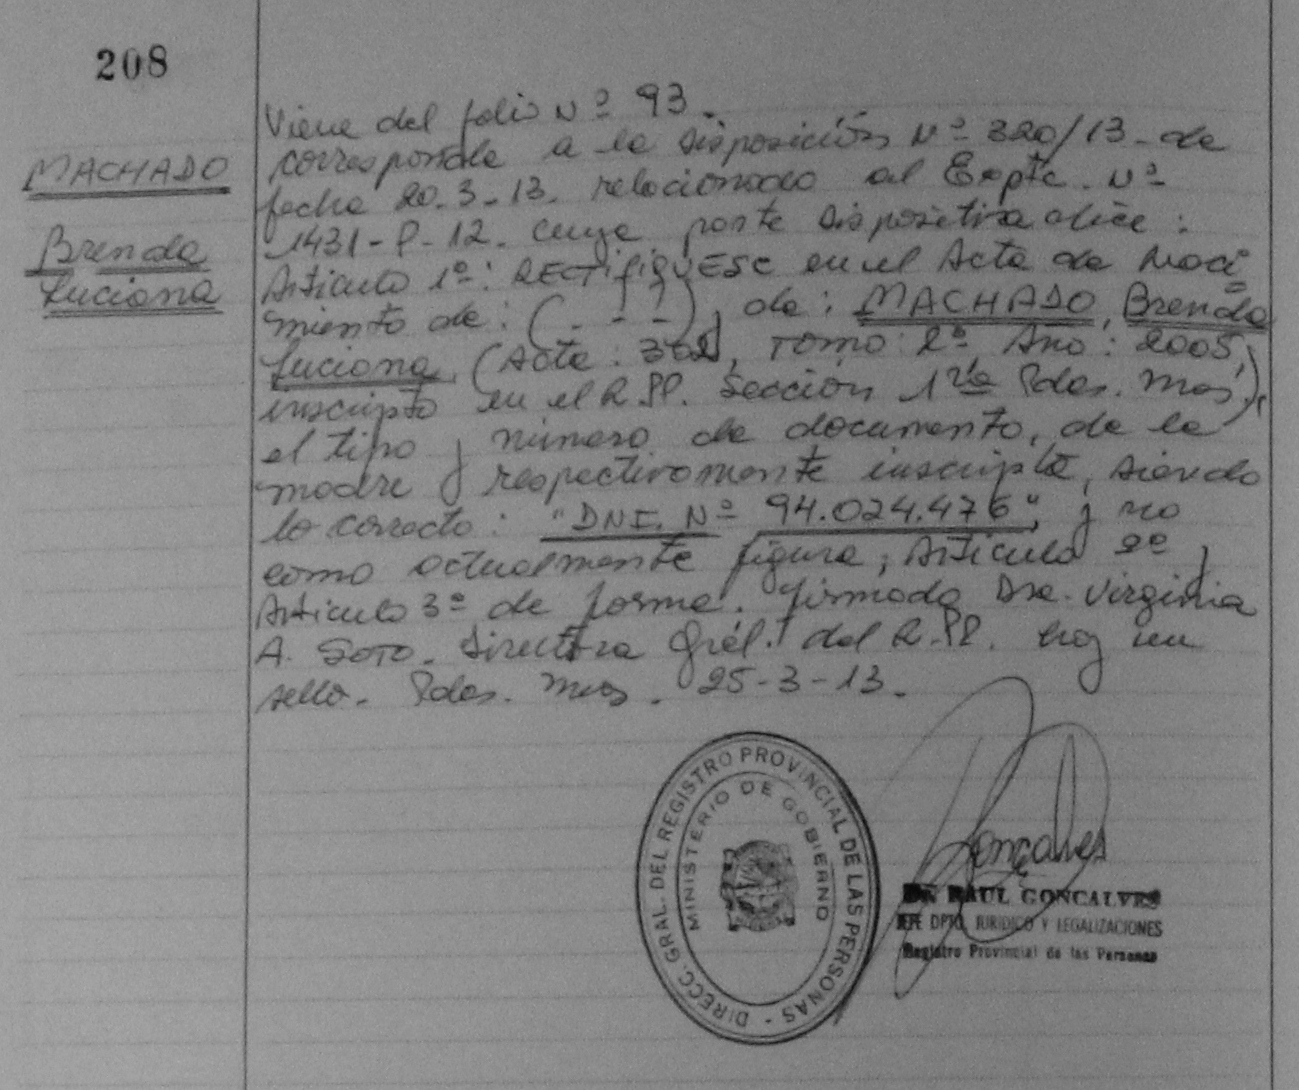 208
MACHADO
Brenda
Luciana
Viene del folio Nº 93.
corresponde a la Disposición Nº 320/13 - de
fecha 20-3-13. relacionado al Expte. Nº
1431-P-12. cuya parte dispositiva dice:
Articulo 1º: RECTIFIQUESE en el Acta de Naci
miento de: (. - - -), de: MACHADO, Brenda
Luciana (Acta: Tomo: 2º Año: 2005,
inscripto en el R.PP. Sección 1ra Pdas. Mnes.),
el tipo y número de documento, de la
madre y respectivamente inscripta, siendo
lo correcto: "DNI. Nº 94.024.476", y no
como actualmente figura, Articulo 2º,
Articulo 3º de forma. firmado Dra. Virginia
A. SOTO. Directora Gral. del R.PP. hay un
sello. Pdas. Mnes. 25-3-13.
DIRECC. GRAL. DEL REGISTRO PROVINCIAL DE LAS PERSONAS -
MINISTERIO DE GOBIERNO
Gonçalves
DR. RAUL GONCALVES
JEFE DPTO. JURIDICO Y LEGALIZACIONES
Registro Provincial de las Personas